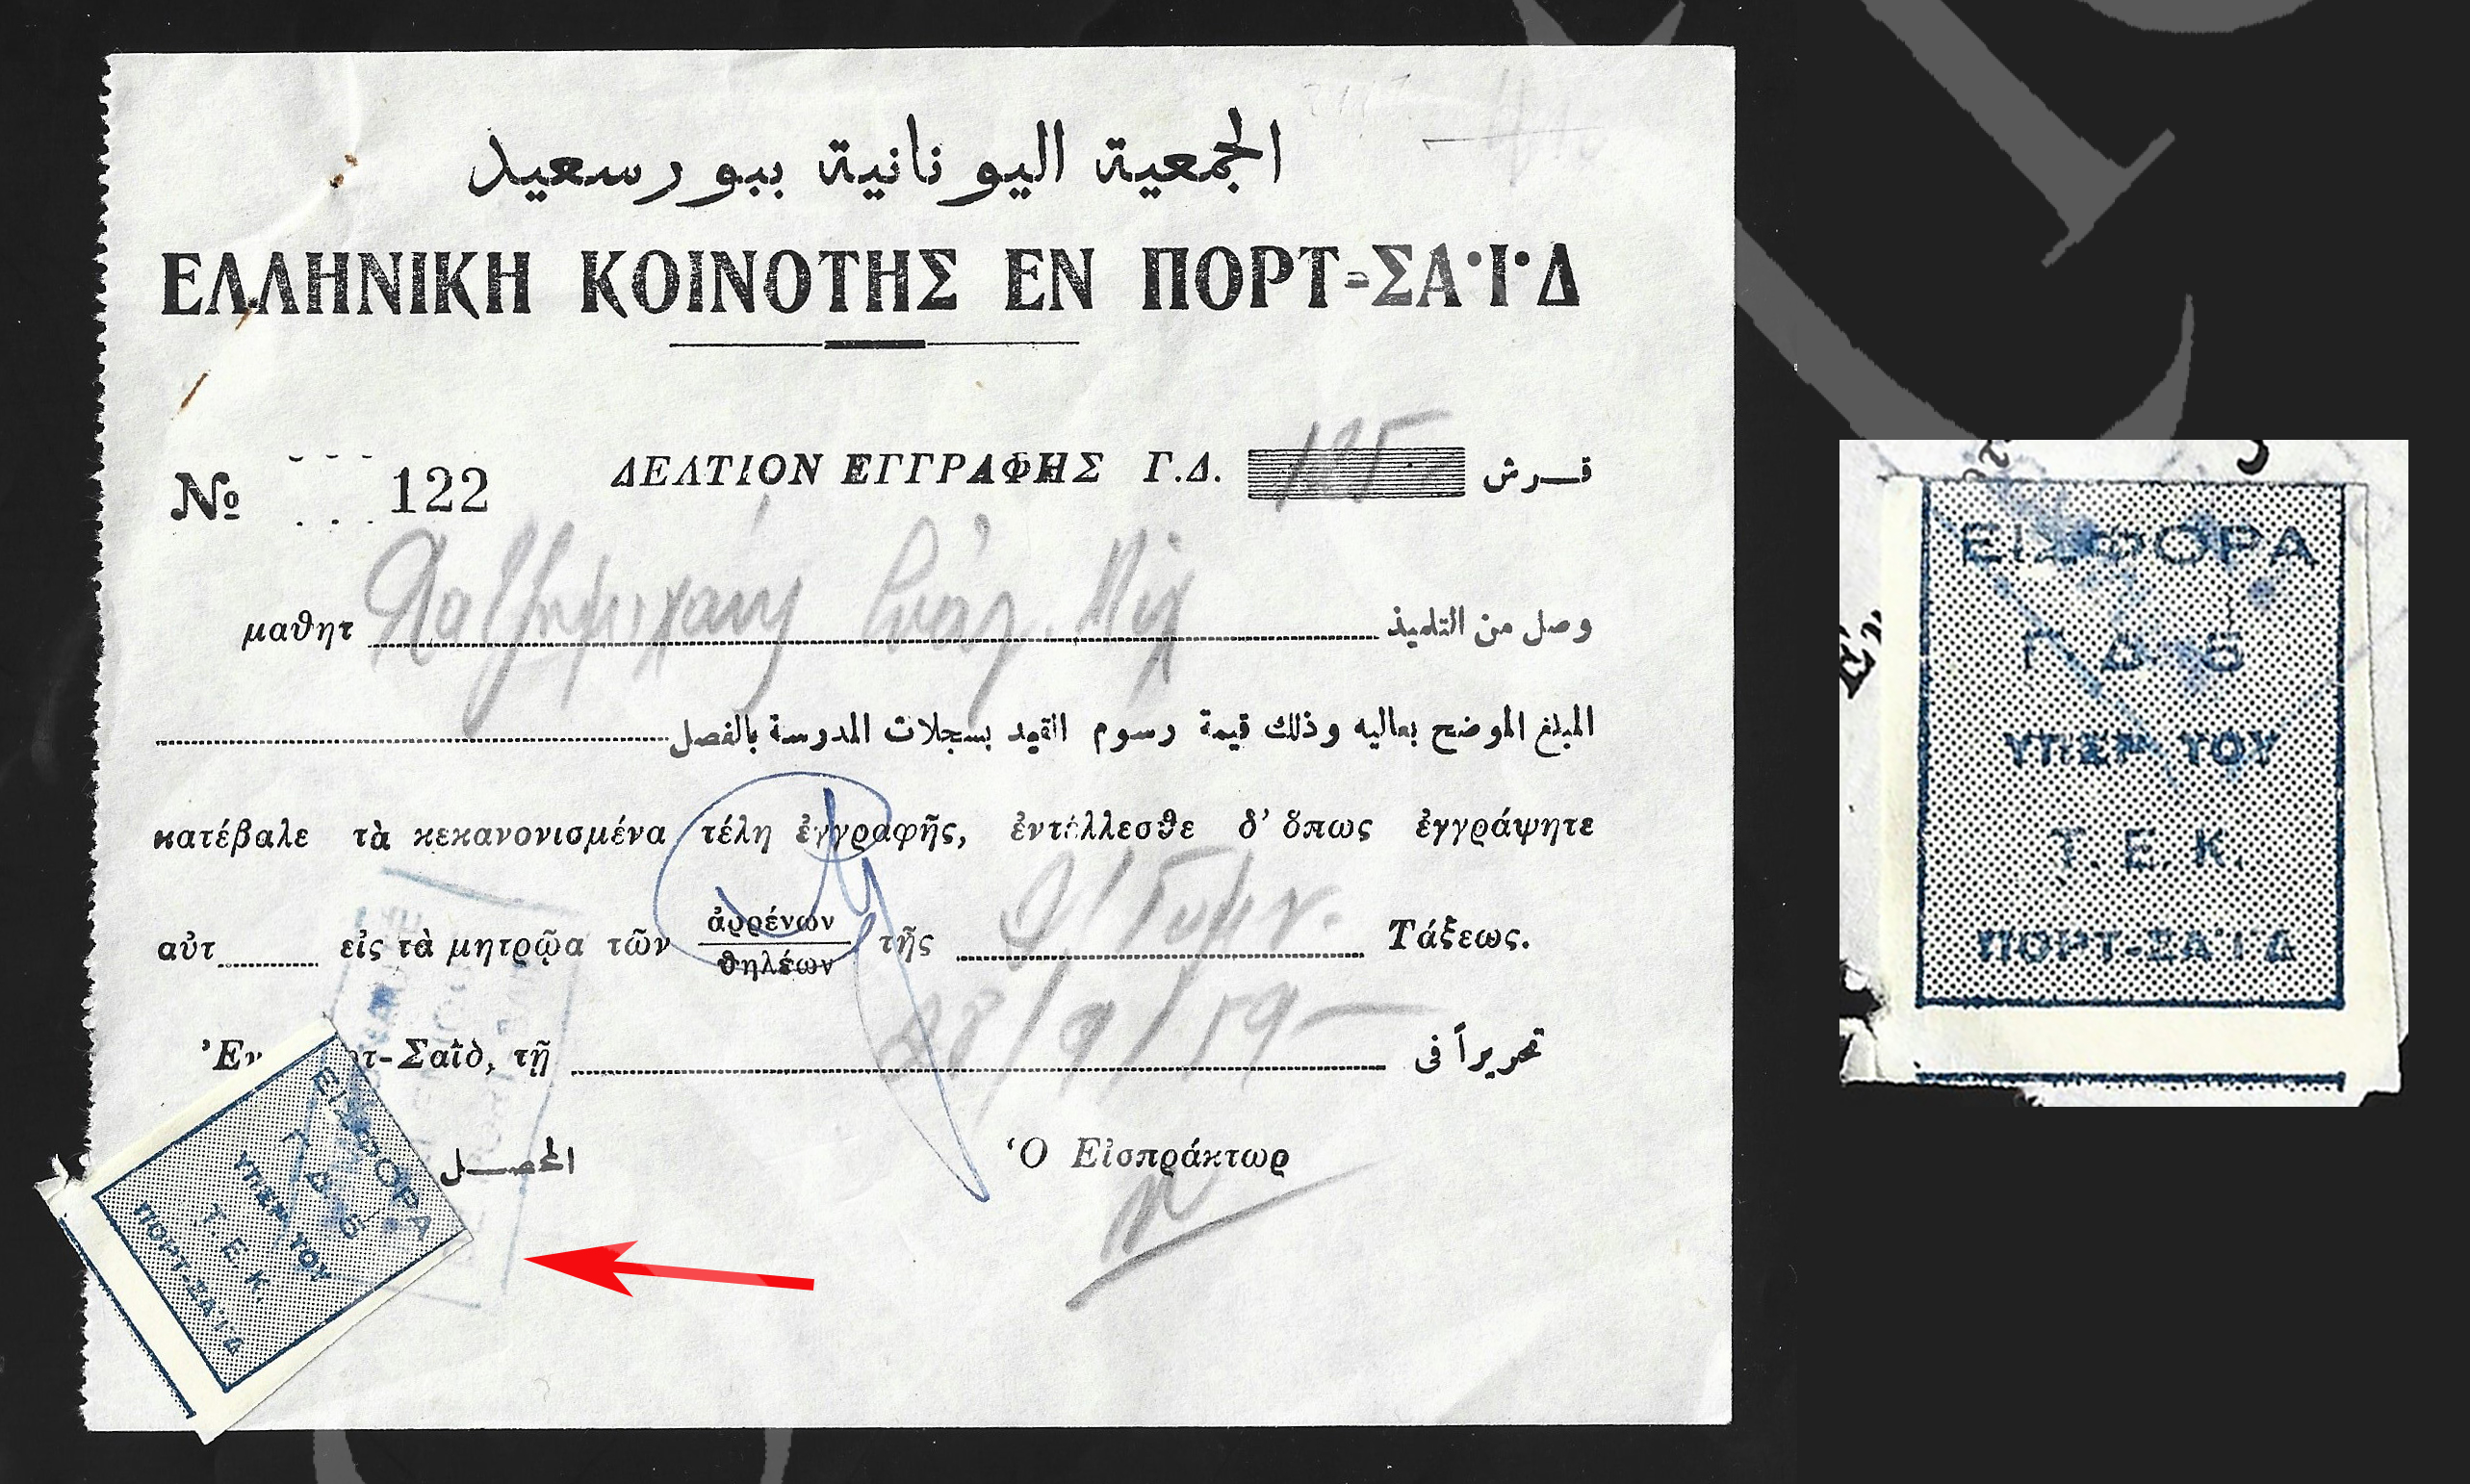 الجمعية اليونانية ببورسعيد
ΕΛΛΗΝΙΚΗ ΚΟΙΝΟΤΗΣ ΕΝ ΠΟΡΤ-ΣΑΪΔ
№ 122 ΔΕΛΤΙΟΝ ΕΓΓΡΑΦΗΣ Γ.Δ. 125 قرش
μαθητ وصل من التلميذ
المبلغ الموضح بعاليه وذلك قيمة رسوم القيد بسجلات المدرسة بالفصل
κατέβαλε τὰ κεκανονισμένα τέλη ἐγγραφῆς, ἐντέλλεσθε δ' ὅπως ἐγγράψητε
αὐτ εἰς τὰ μητρῷα τῶν ἀρρένων
θηλέων τῆς Γυμν. Τάξεως.
Ἐν ρτ-Σαΐδ, τῇ 28/9/59 تحريراً فى
المحصل Ὁ Εἰσπράκτωρ
ΕΙΣΦΟΡΑ
Γ Δ 5
ΥΠΕΡ ΤΟΥ
Τ. Ε. Κ.
ΠΟΡΤ-ΣΑΪΔ
ΕΙΣΦΟΡΑ
Γ Δ 5
ΥΠΕΡ ΤΟΥ
Τ. Ε. Κ.
ΠΟΡΤ-ΣΑΪΔ